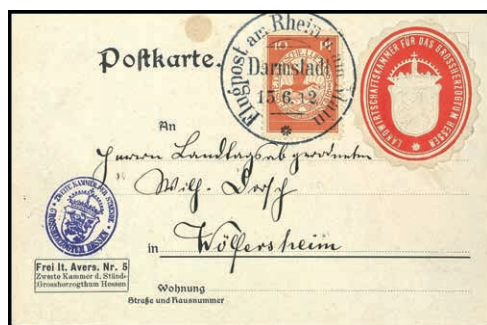 Postkarte.
Flugpost am Rhein u. am Main
10 Pf
Darmstadt
15.6.12
LANDWIRTSCHAFTSKAMMER FÜR DAS GROSSHERZOGTUM HESSEN
An
Herrn Landtagsabgeordneten
Wilh. Dorsch
in Wölfersheim
ZWEITE KAMMER DER STÄNDE
GROSSHERZOGTUM HESSEN
Frei lt. Avers. Nr. 5
Zweete Kammer d. Stände
Grossherzogthum Hessen
Wohnung
Straße und Hausnummer